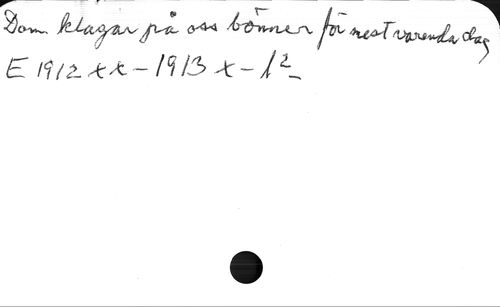 Dom klagar på oss bönner för nest varenda dag
E 1912 xx - 1913 x - 1²-